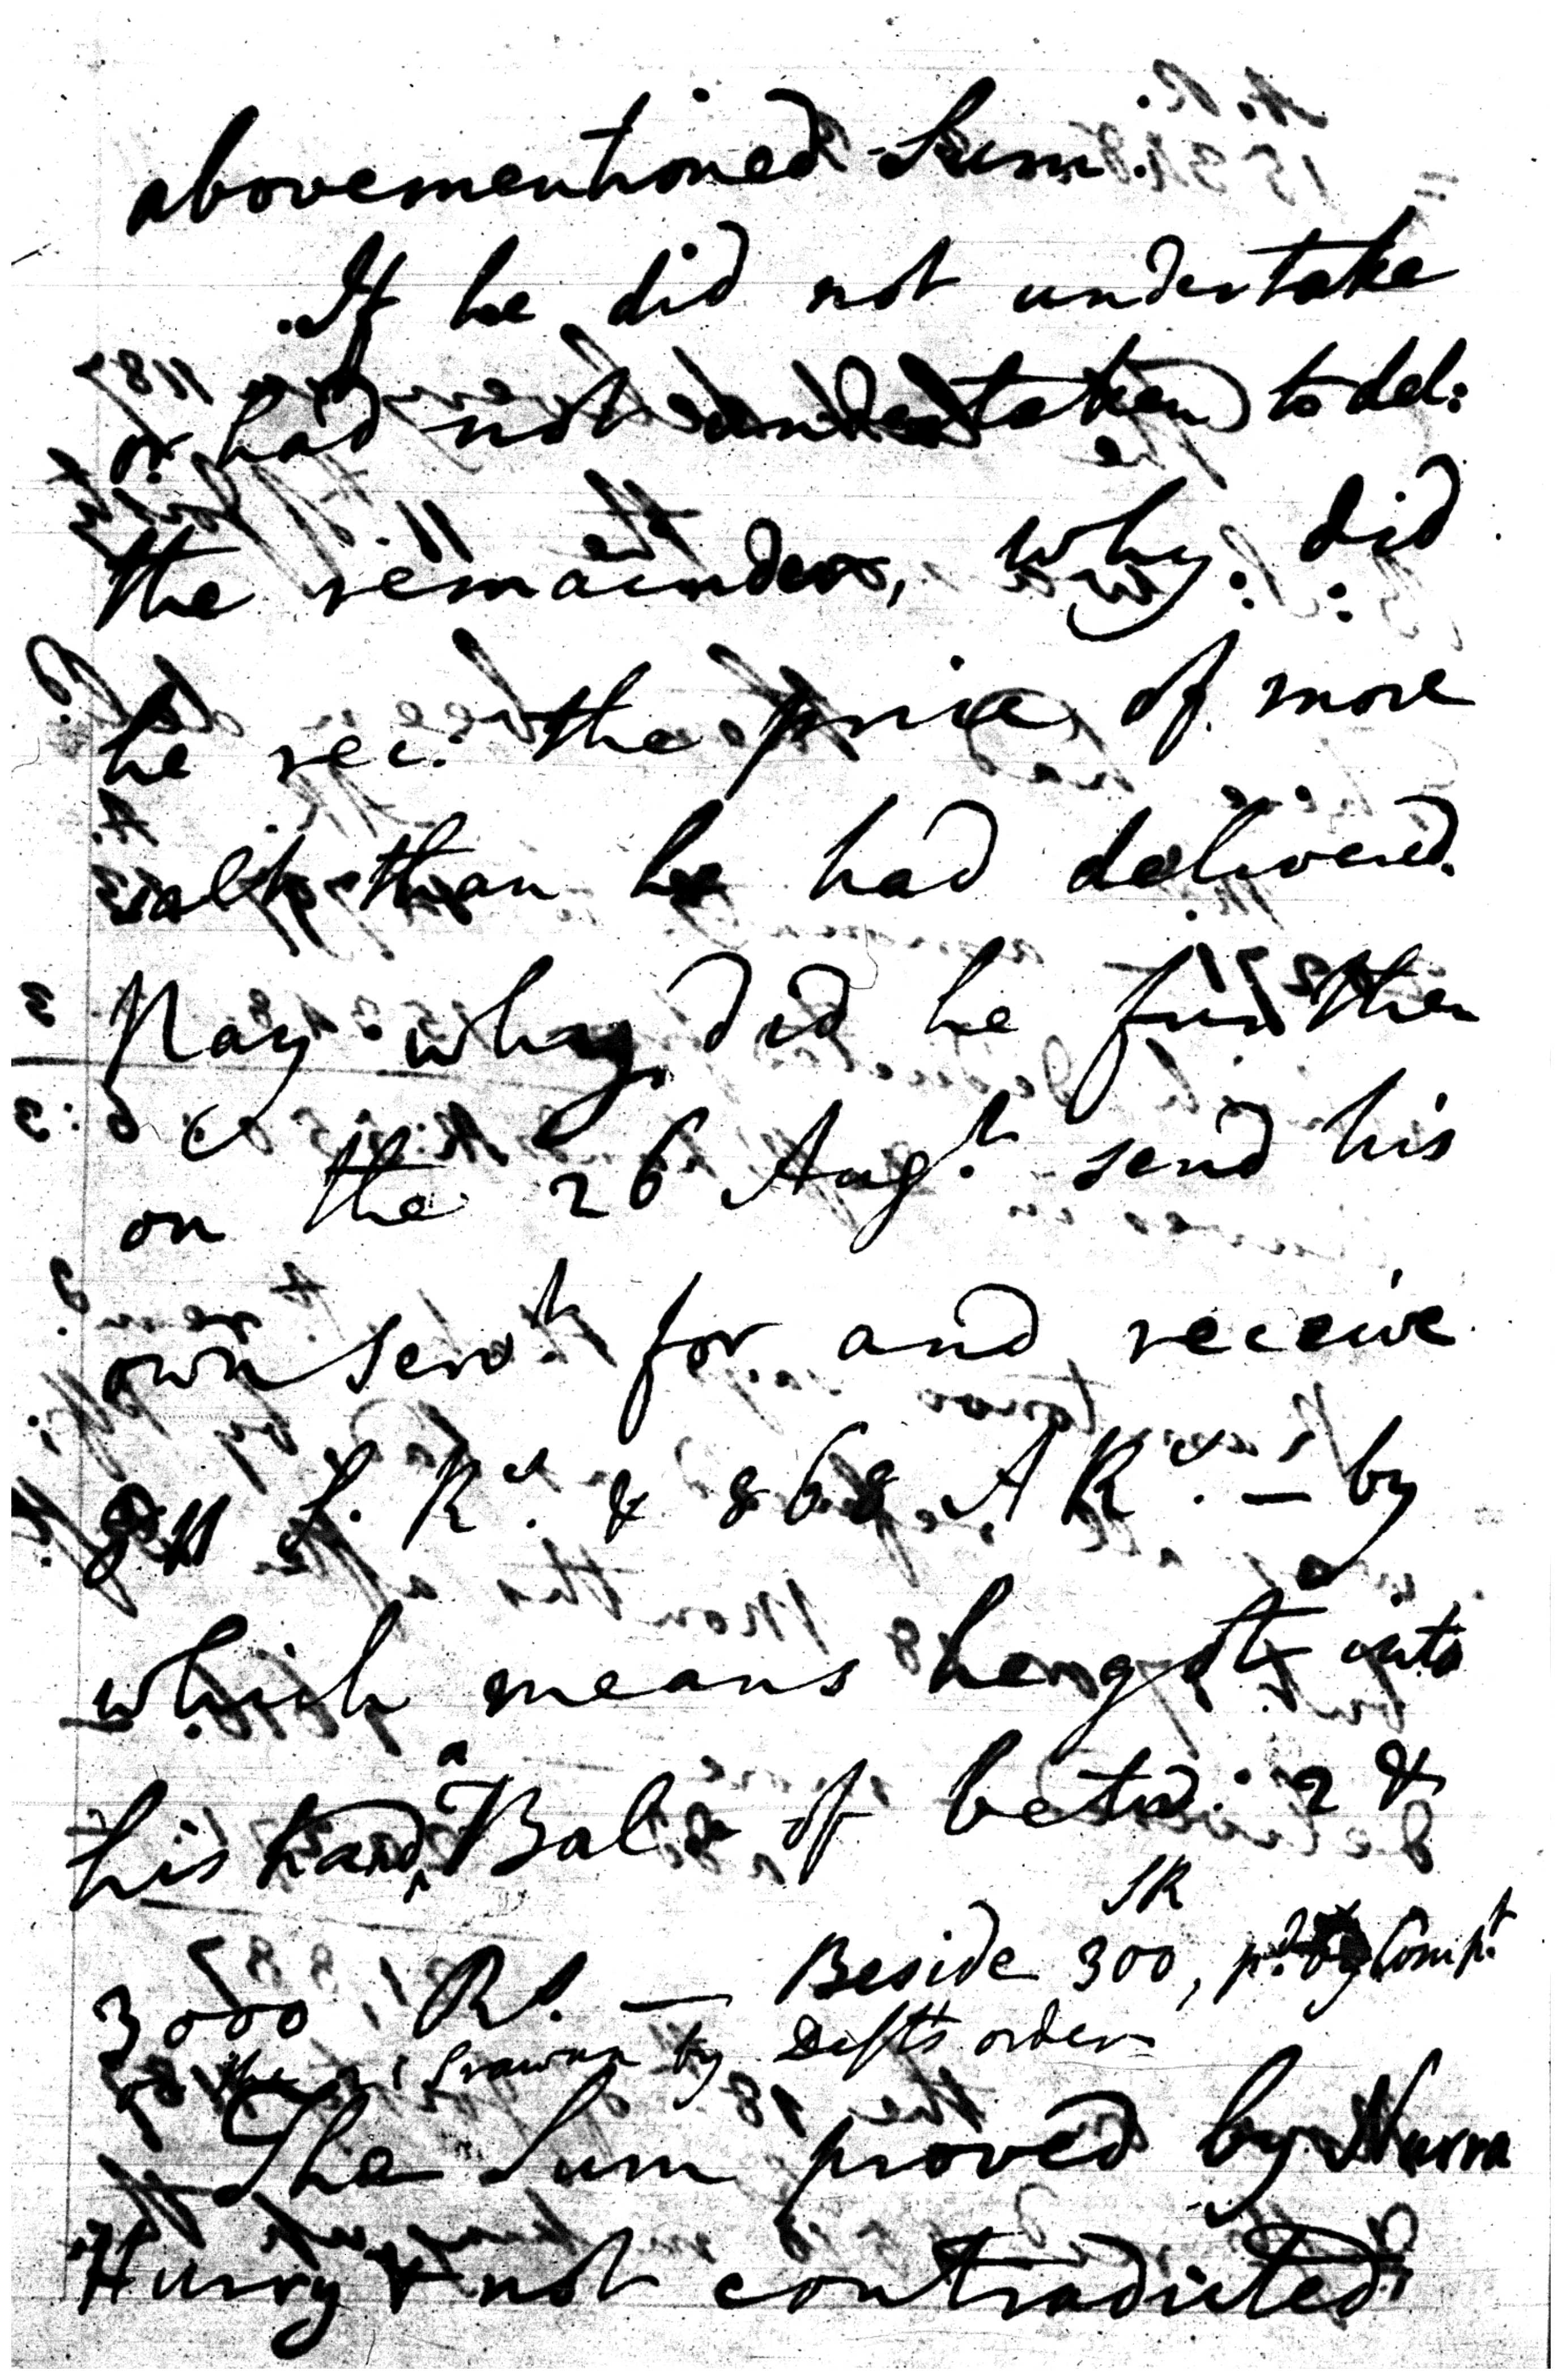 abovementioned Sum.
If he did not undertake
or had not undertaken to del:
the remainder, why did
he rec. the price of more
salt than he had delivered.
Nay why did he further
on the 26 Aug.t send his
own Serv.t for and receive
S. R.s & 868 A R.s — by
which means he got into
his hand a Bal.e of betw. 2 &
3000 R.s — Beside 300 SR, p.d by Comp.t
drawn by Defts order
The Sum proved by Hurra
Hurry & not contradicted